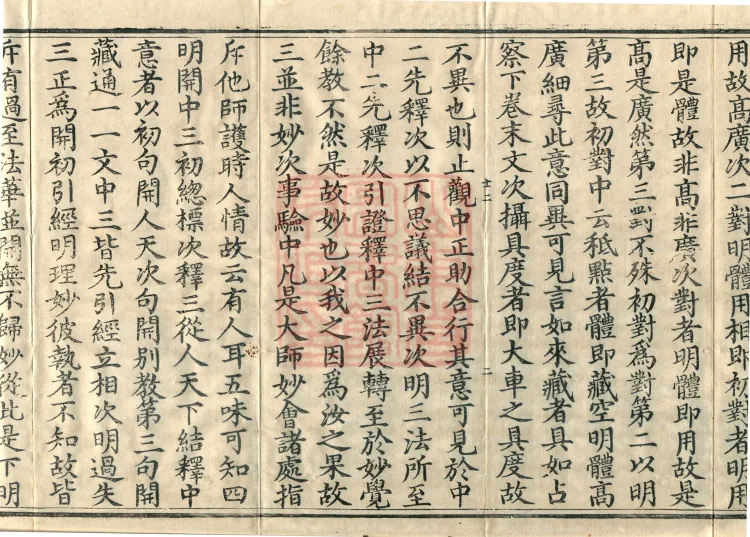 用故高廣次二對明體用相即初對者明用
即是體故非高非廣次對者明體即用故是
高是廣然第三對不殊初對為對第二以明
第三故初對中云秪點者體即藏空明體高
廣細尋此意同異可見言如來藏者具如占
察下卷末文次攝具度者即大車之具度故
不異也則止觀中正助合行其意可見於中
二先釋次以不思議結不異次明三法所至
中二先釋次引證釋中三法展轉至於妙覺
餘教不然是故妙也以我之因為汝之果故
三並非妙次事驗中凡是大師妙會諸處指
斥他師護時人情故云有人耳五味可知四
明開中三初總標次釋三從人天下結釋中
意者以初句開人天次句開別教第三句開
藏通一一文中三皆先引經立相次明過失
三正為開初引經明理妙彼執者不知故皆
斥有過至法華並開無不歸妙從此是下明